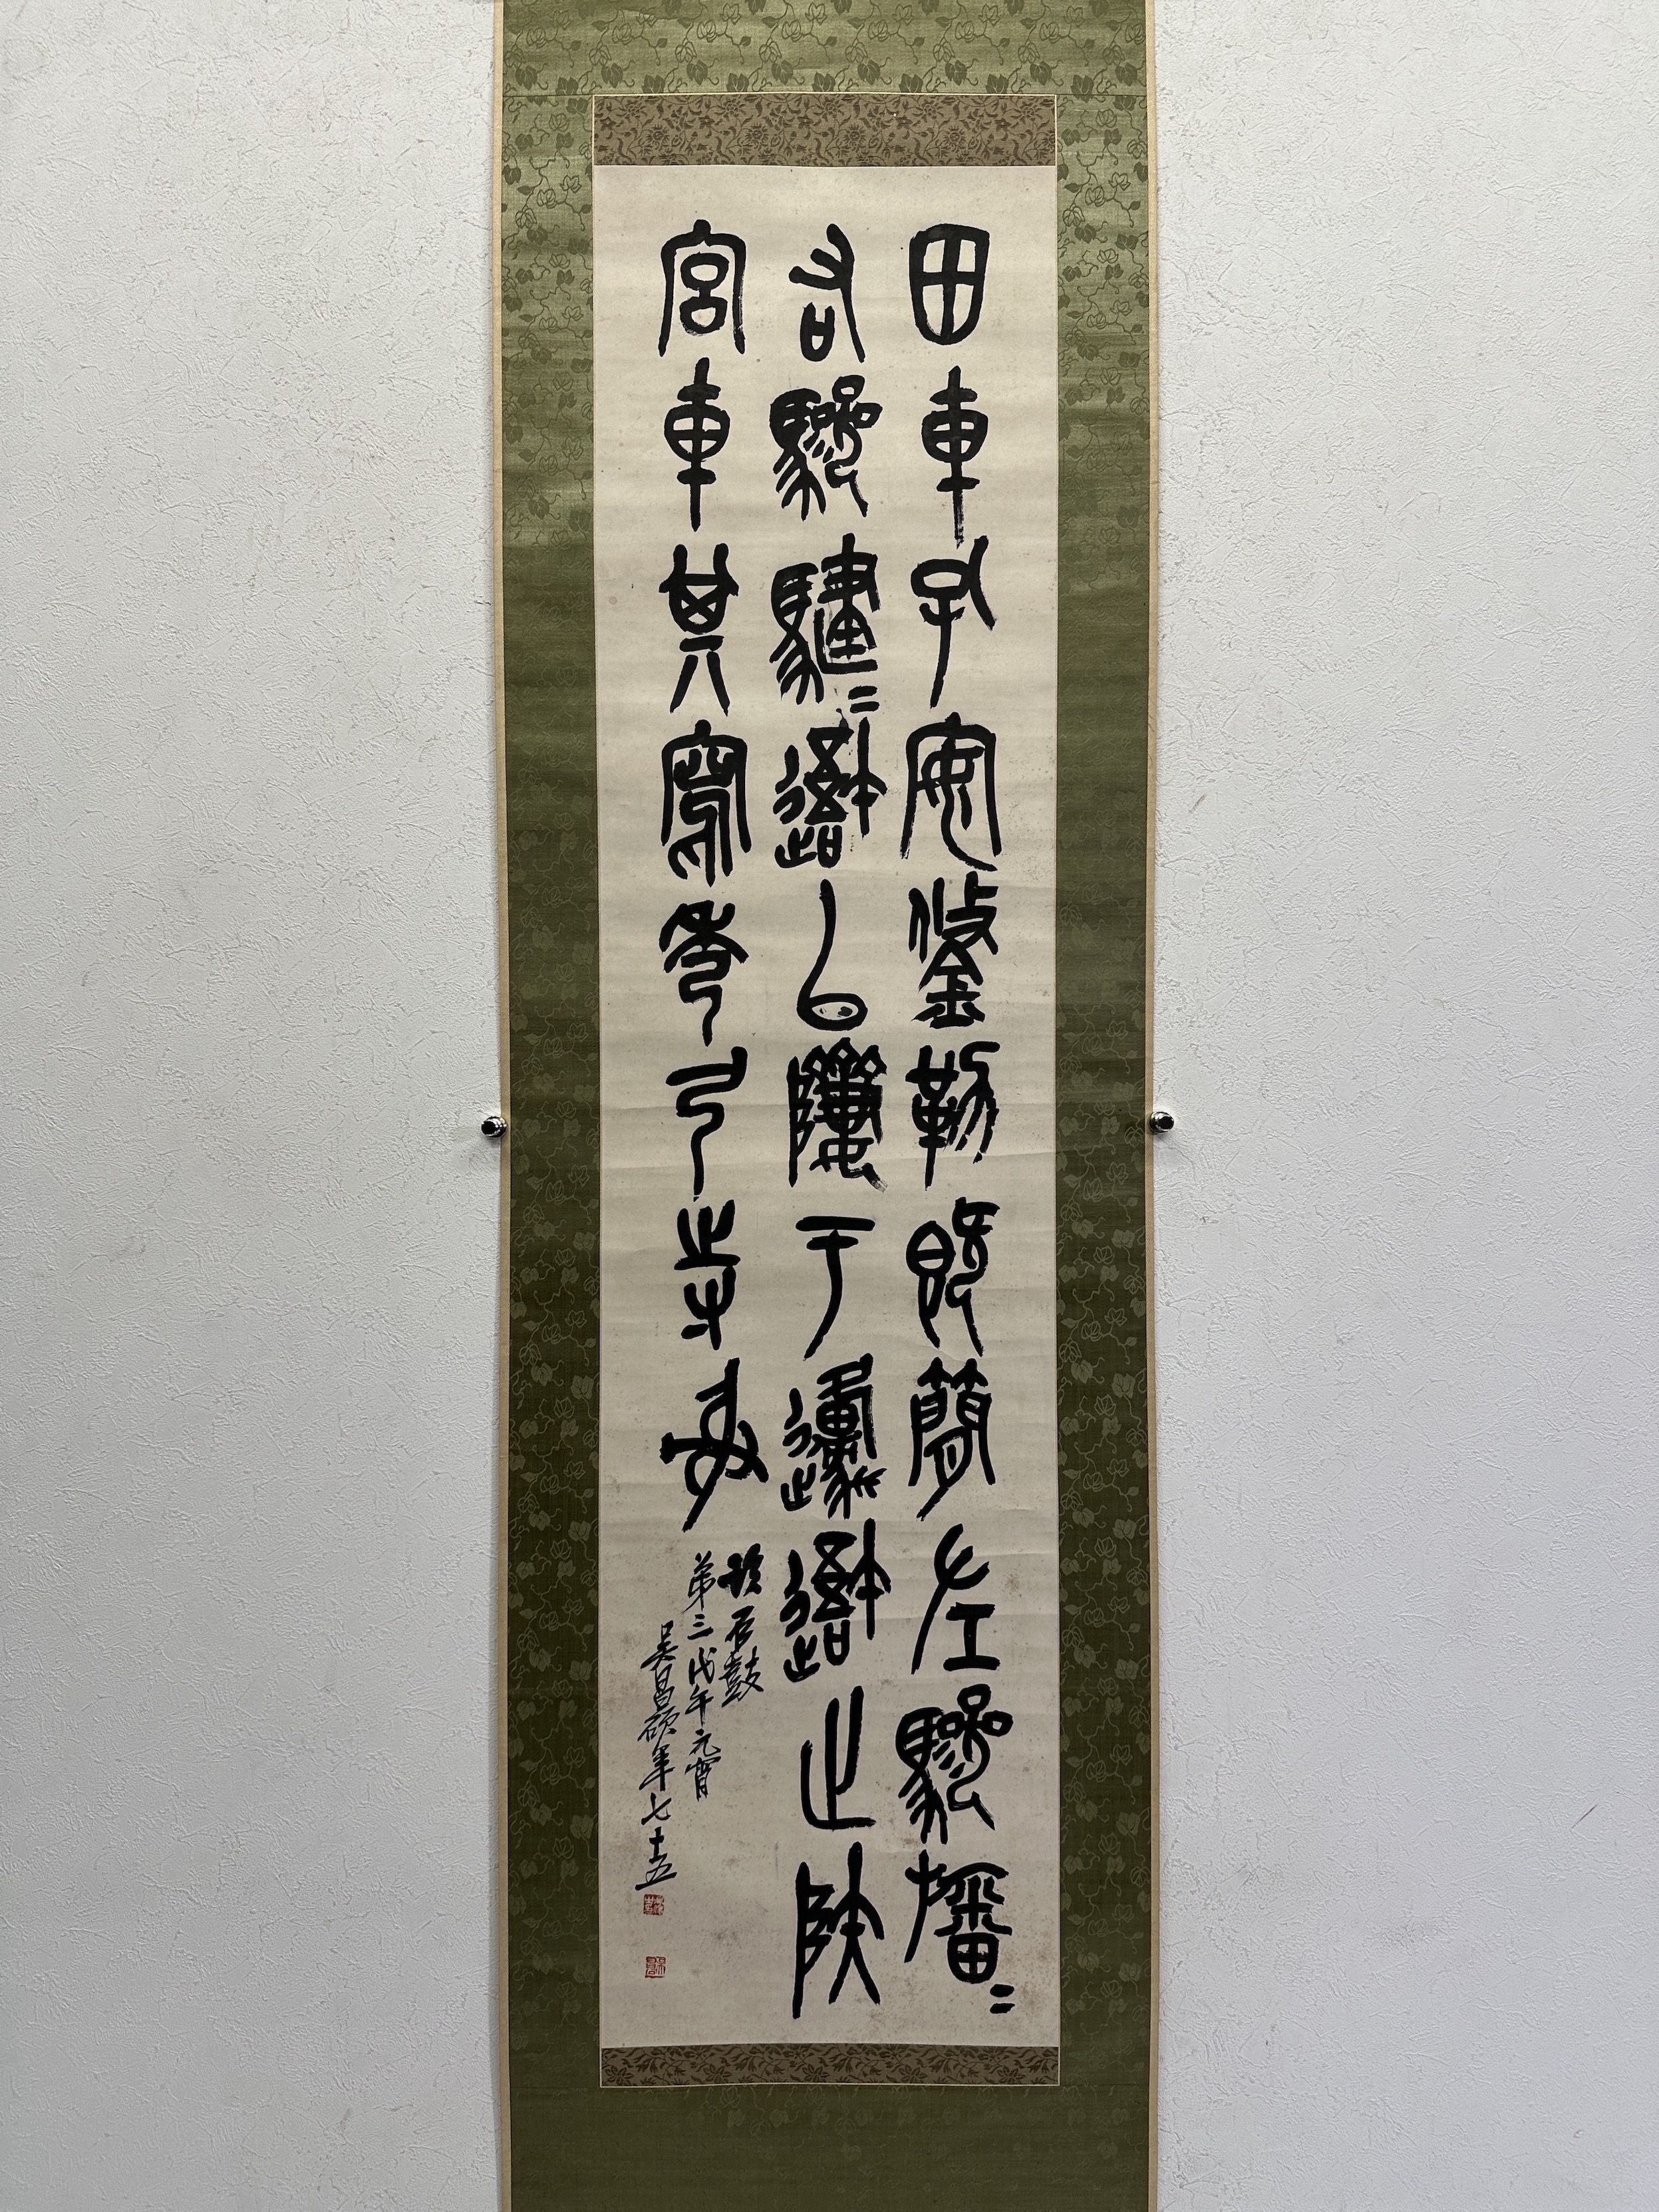 田車孔安鋚勒既簡左驂旛〻
右驂騝〻吾以隮于邍吾止陕
宮車其寫秀弓寺射
石鼓
第三戊午元宵
吳昌碩年七十五